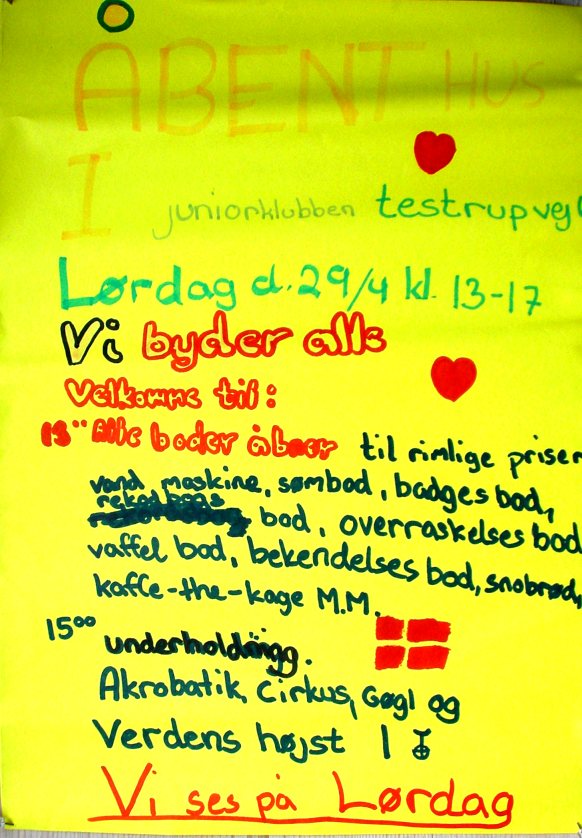 ÅBENT HUS
I juniorklubben testrupvej
Lørdag d. 29/4 kl. 13-17
Vi byder alle
Velkomne til:
13⁰⁰ Alle boder åbner til rimlige priser
vand maskine, sømbod, badges bod,
bod, overraskelses bod
vaffel bod, bekendelses bod, snobrød,
kaffe-the-kage M.M.
15⁰⁰ underholdning.
Akrobatik, cirkus, Gøgl og
Verdens højst 1
Vi ses på Lørdag